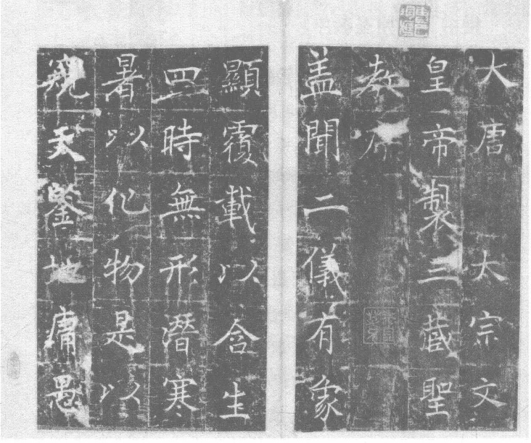 大唐大宗文
皇帝製三藏聖
教序
盖聞二儀有象
顯覆載以含生
四時無形潛寒
暑以化物是以
窺天鑒地庸愚